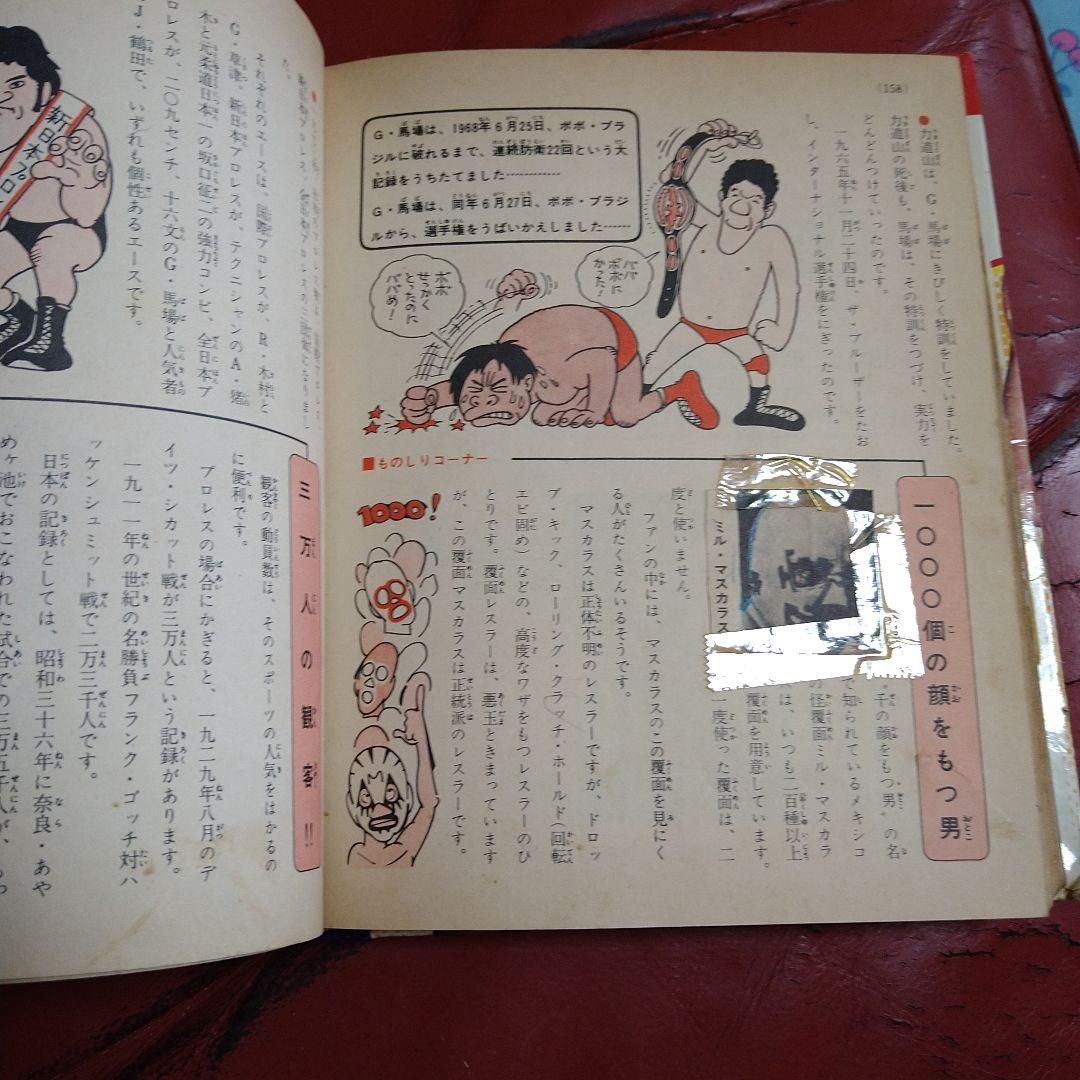 (158)
●力道山は、G・馬場にきびしく特訓をしていました。
力道山の死後も、馬場は、その特訓をつづけ、実力を
どんどんつけていったのです。
一九六五年十一月二十四日、ザ・ブルーザーをたお
し、インターナショナル選手権をにぎったのです。
G・馬場は、1968年6月25日、ボボ・ブラ
ジルに破れるまで、連続防衛22回という大
記録をうちたてました…………
G・馬場は、同年6月27日、ボボ・ブラジ
ルから、選手権をうばいかえしました……
ババ
ボボに
かった!
ボボ
せっかく
とったのに
ババめ!
■ものしりコーナー
一〇〇〇個の顔をもつ男
千の顔をもつ男〟の名
で知られているメキシコ
の怪覆面ミル・マスカラ
は、いつも二百種以上
覆面を用意しています。
一度使った覆面は、二
ミル・マスカラス
度と使いません。
ファンの中には、マスカラスのこの覆面を見にく
る人がたくさんいるそうです。
マスカラスは正体不明のレスラーですが、ドロッ
プ・キック、ローリング・クラッチ・ホールド(回転
エビ固め)などの、高度なワザをもつレスラーのひ
とりです。覆面レスラーは、悪玉ときまっています
が、この覆面マスカラスは正統派のレスラーです。
1000!
た。
それぞれのエースは、国際プロレスが、R・木村と
G・草津、新日本プロレスが、テクニシャンのA・猪
木と元柔道日本一の坂口征二の強力コンビ、全日本プ
ロレスが、二〇九センチ、十六文のG・馬場と人気者
J・鶴田で、いずれも個性あるエースです。
新日本プロ
三万人の観客!!
観客の動員数は、そのスポーツの人気をはかるの
に便利です。
プロレスの場合にかぎると、一九二九年八月のデ
イツ・シカット戦が三万人という記録があります。
一九一一年の世紀の名勝負フランク・ゴッチ対ハ
ッケンシュミット戦で二万三千人です。
日本の記録としては、昭和三十六年に奈良・あや
めケ池でおこなわれた試合での三万五千人が、